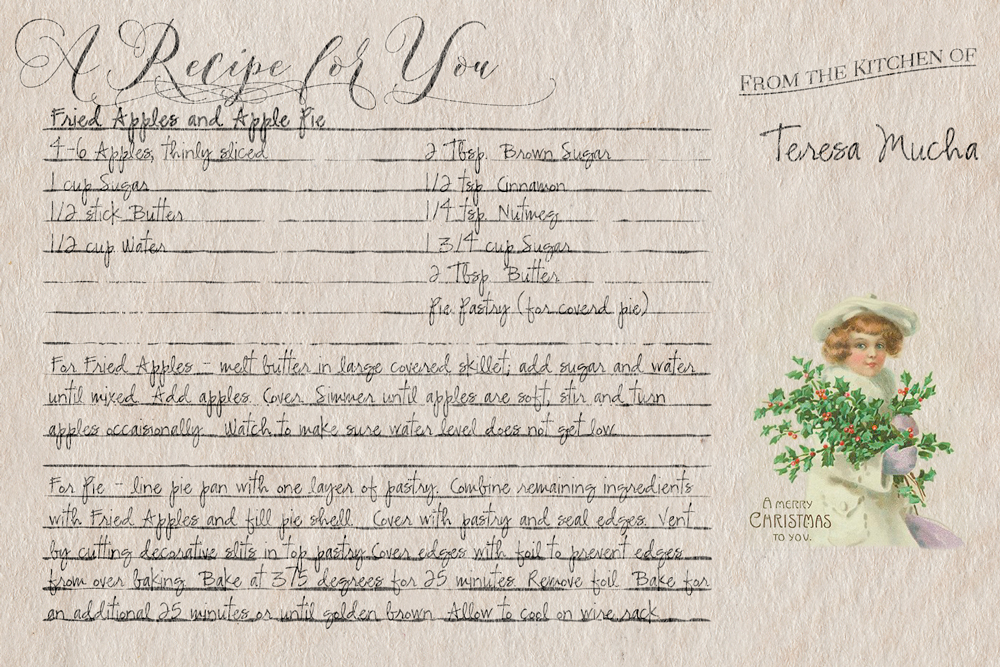 A Recipe for You
FROM THE KITCHEN OF
Teresa Mucha
Fried Apples and Apple Pie
4-6 Apples, thinly sliced
1 cup Sugar
1/2 stick Butter
1/2 cup Water
2 Tbsp. Brown Sugar
1/2 tsp. Cinnamon
1/4 tsp. Nutmeg
1 3/4 cup Sugar
2 Tbsp Butter
Pie Pastry (for coverd pie)
For Fried Apples - melt butter in large covered skillet; add sugar and water
until mixed. Add apples. Cover. Simmer until apples are soft; stir and turn
apples occaisionally. Watch to make sure water level does not get low.
For Pie - line pie pan with one layer of pastry. Combine remaining ingredients
with Fried Apples and fill pie shell. Cover with pastry and seal edges. Vent
by cutting decorative slits in top pastry.Cover edges with foil to prevent edges
from over baking. Bake at 375 degrees for 25 minutes. Remove foil. Bake for
an additional 25 minutes or until golden brown. Allow to cool on wire rack.
A MERRY
CHRISTMAS
TO YOU.